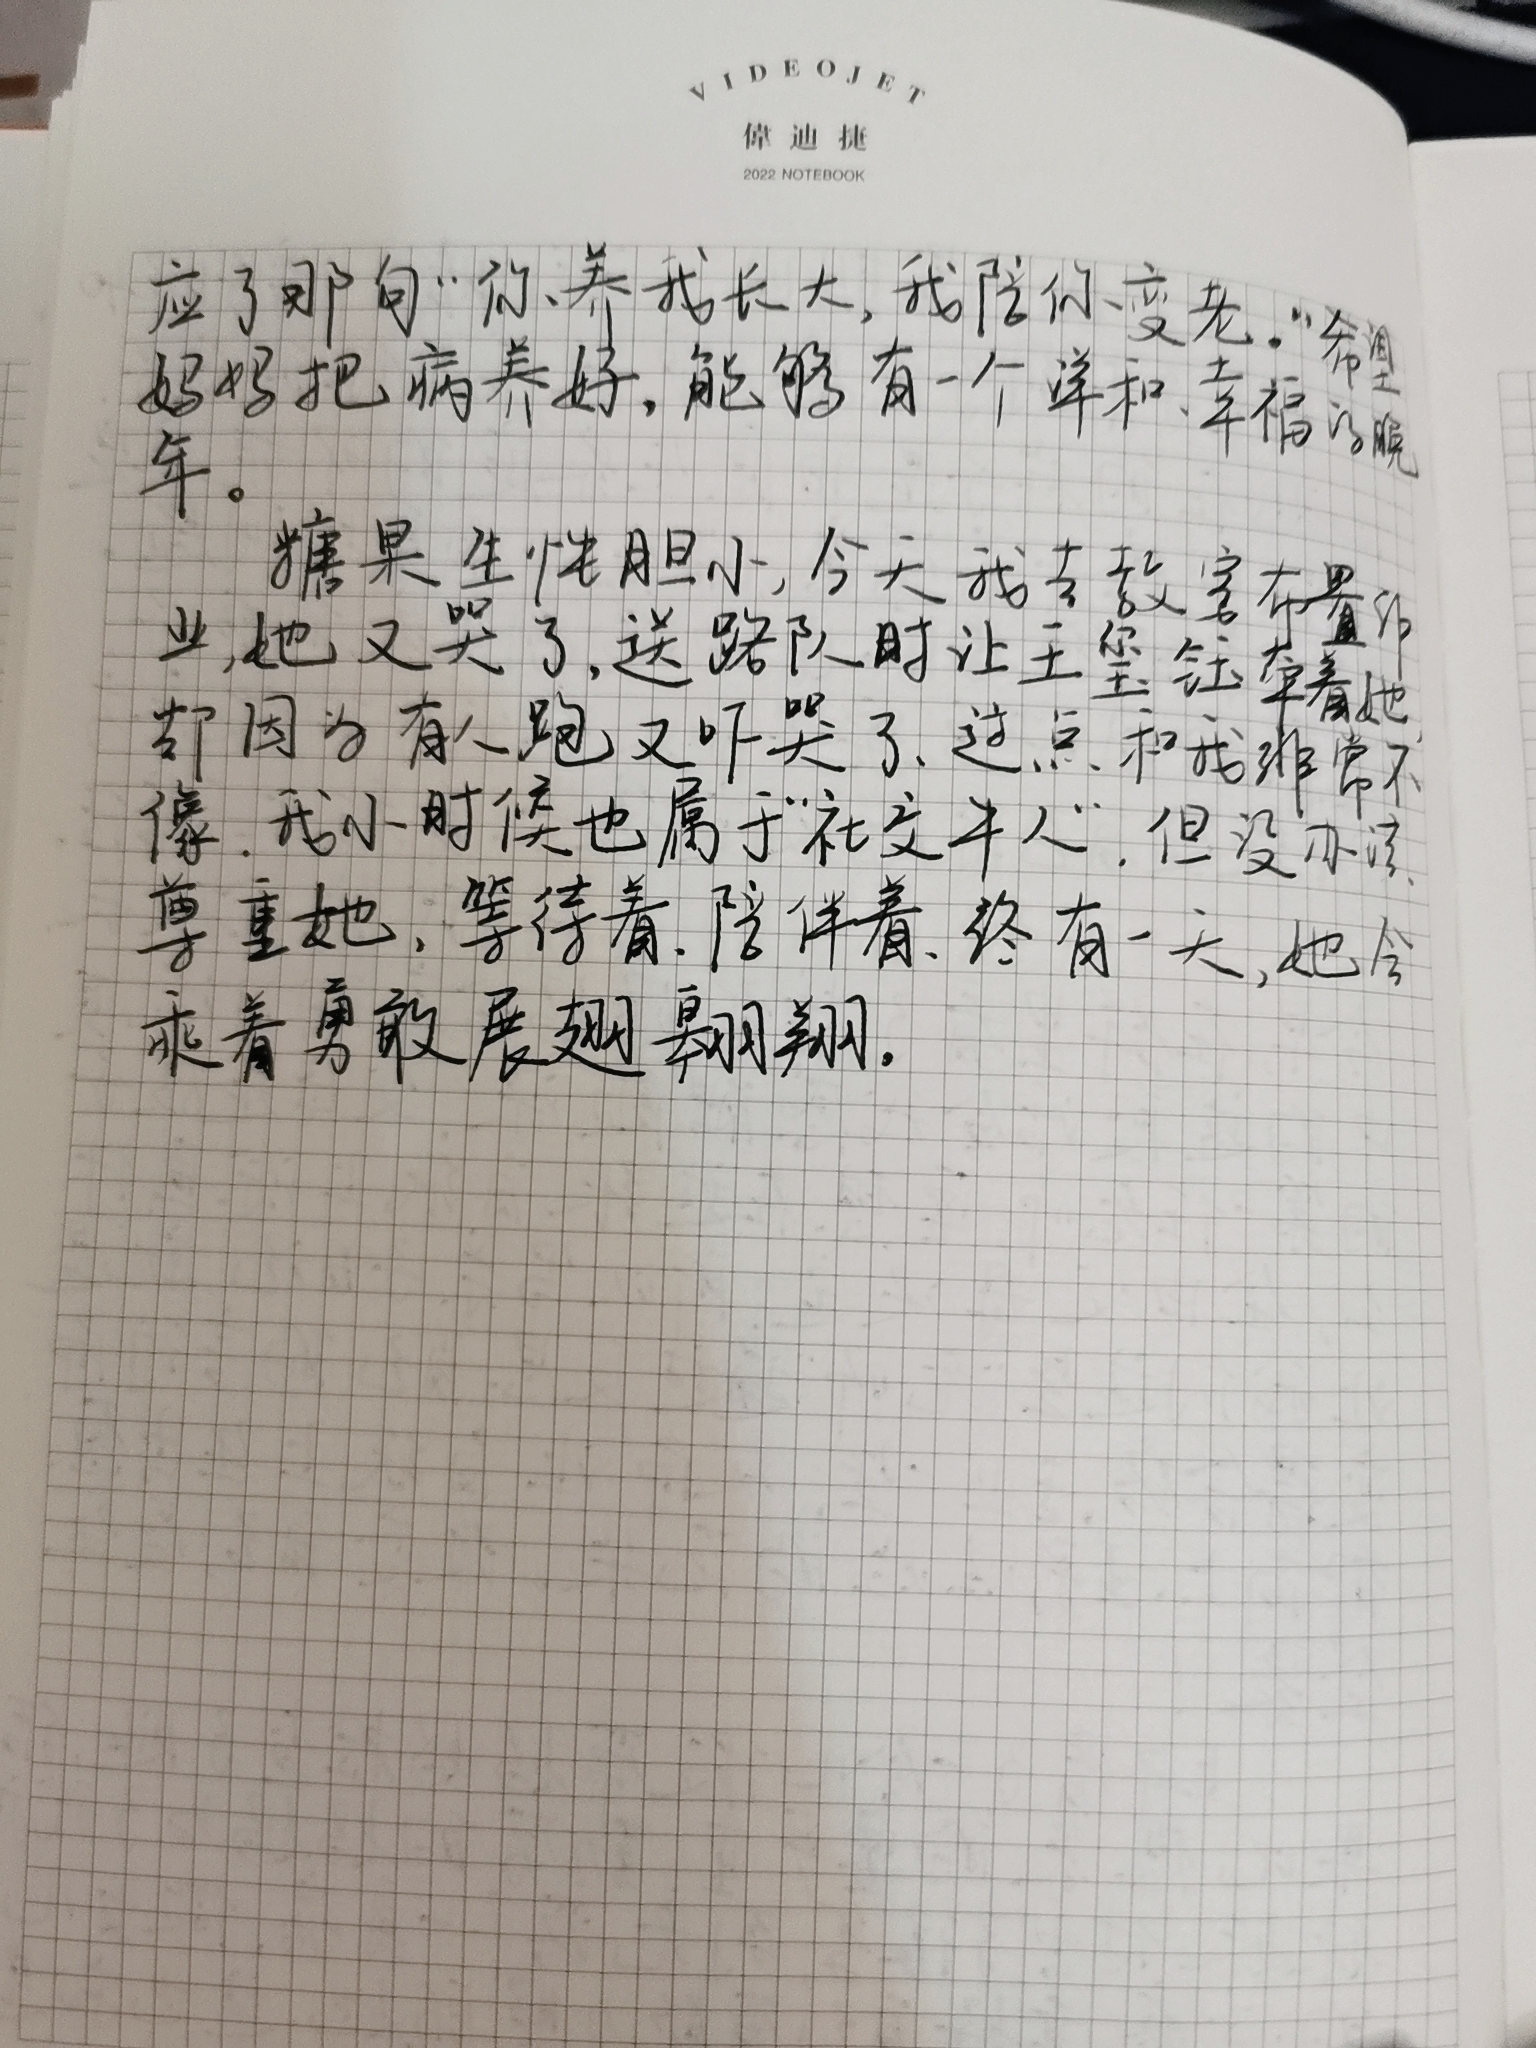 VIDEOJET
偉迪捷
2022 NOTEBOOK
应了那句“你养我长大,我陪你变老。”希望
妈妈把病养好,能够有一个祥和、幸福的晚
年。
糖果生性胆小,今天我去教室布置作
业,她又哭了,送路队时让王玺钰牵着她
却因为有人跑又吓哭了、这点、和我非常不
像.我小时候也属于“社交牛人”.但没办法、
尊重她,等待着、陪伴着、终有一天,她会
乘着勇敢展翅翱翔.